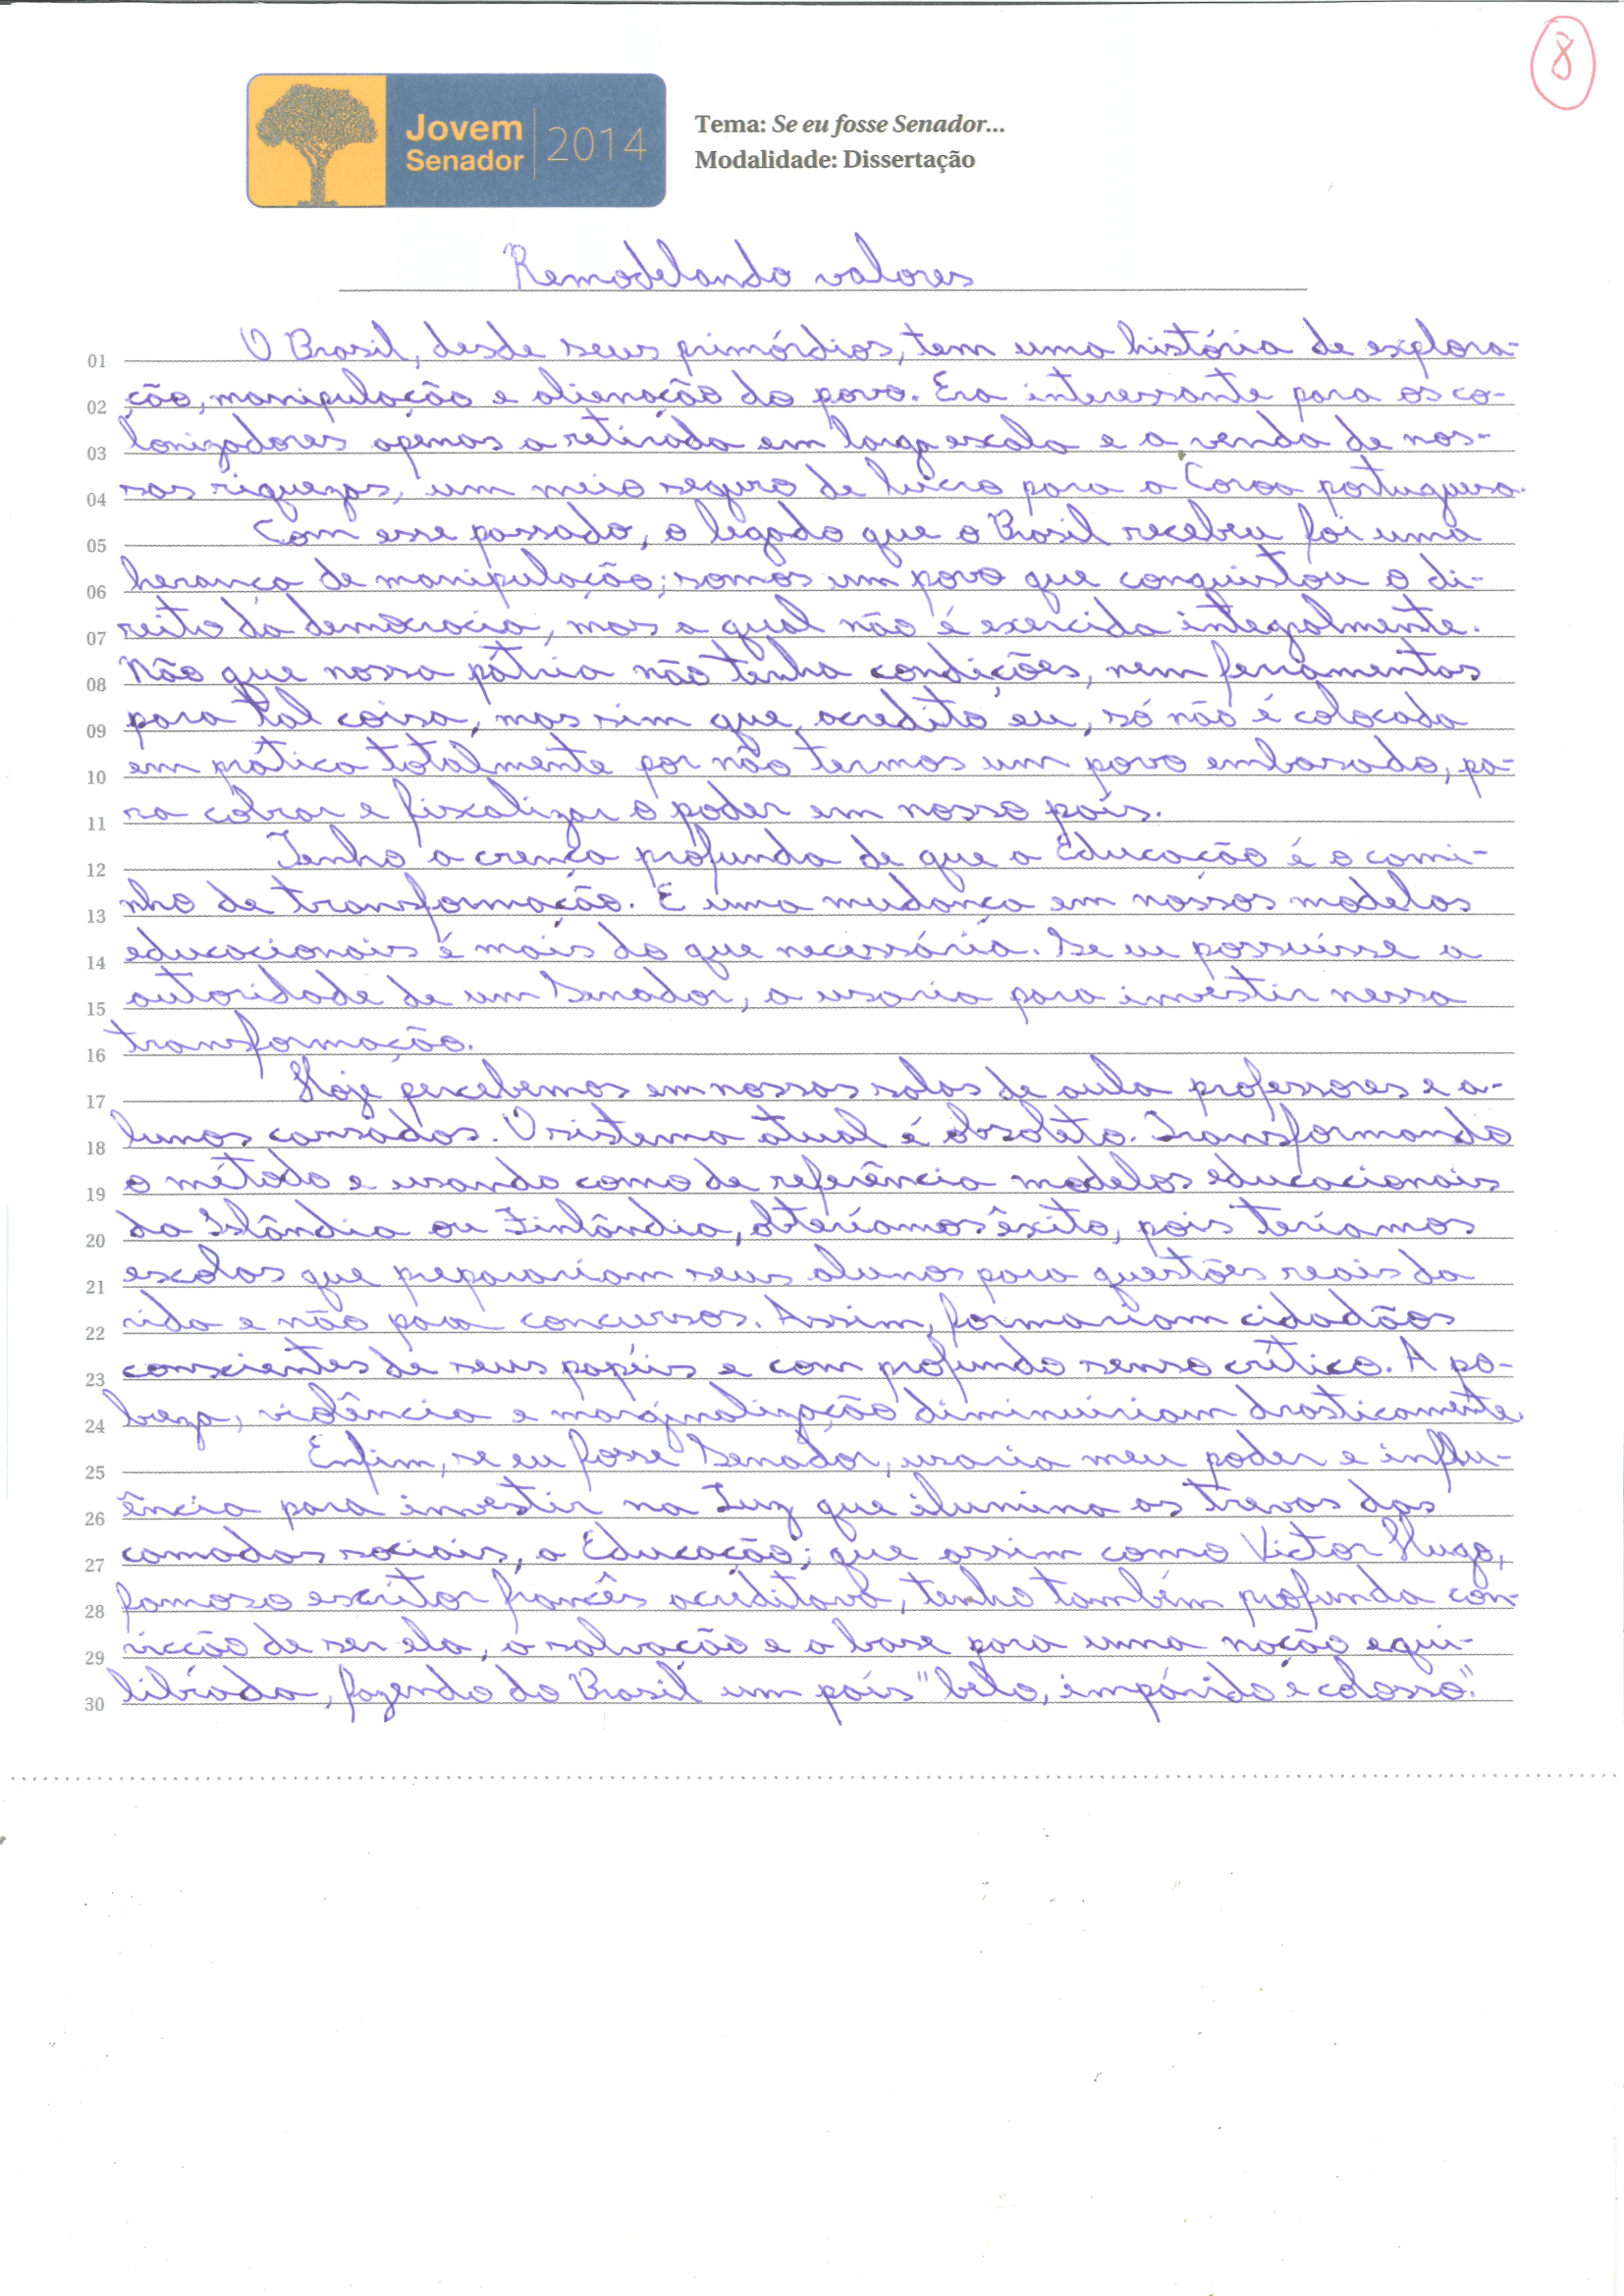 8
Jovem
Senador
2014
Tema: Se eu fosse Senador...
Modalidade: Dissertação
Remodelando valores
01 O Brasil, desde seus primórdios, tem uma história de explora-
02 ção, manipulação e alienação do povo. Era interessante para os co-
03 lonizadores apenas a retirada em larga escala e a venda de nos-
04 sas riquezas, um meio seguro de lucro para a Coroa portuguesa.
05 Com esse passado, o legado que o Brasil recebeu foi uma
06 herança de manipulação; somos um povo que conquistou o di-
07 reito da democracia, mas a qual não é exercida integralmente.
08 Não que nossa pátria não tenha condições, nem ferramentas
09 para tal coisa, mas sim que, acredito eu, só não é colocada
10 em prática totalmente por não termos um povo embasado, pa-
11 ra cobrar e fiscalizar o poder em nosso país.
12 Tenho a crença profunda de que a Educação é o cami-
13 nho de transformação. E uma mudança em nossos modelos
14 educacionais é mais do que necessária. Se eu possuísse a
15 autoridade de um Senador, a usaria para investir nessa
16 transformação.
17 Hoje percebemos em nossas salas de aula professores e a-
18 lunos cansados. O sistema atual é obsoleto. Transformando
19 o método e usando como de referência modelos educacionais
20 da Islândia ou Finlândia, obteríamos êxito, pois teríamos
21 escolas que preparariam seus alunos para questões reais da
22 vida e não para concursos. Assim, formariam cidadãos
23 conscientes de seus papéis e com profundo senso crítico. A po-
24 breza, violência e marginalização diminuiriam drasticamente.
25 Enfim, se eu fosse Senador, usaria meu poder e influ-
26 ência para investir na Luz que ilumina as trevas das
27 camadas sociais, a Educação; que assim como Victor Hugo,
28 famoso escritor francês acreditava, tenho também profunda con-
29 vicção de ser ela, a salvação e a base para uma nação equi-
30 librada, fazendo do Brasil um país "belo, impávido e colosso."